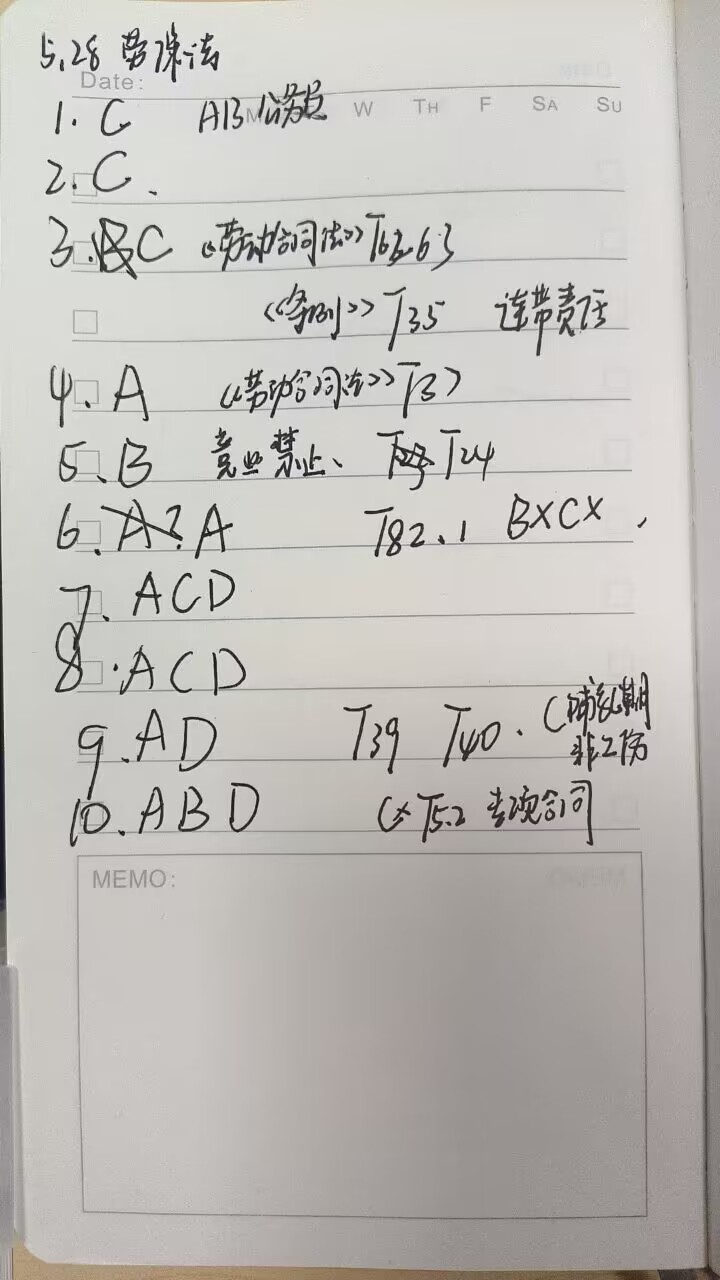 5.28 劳保法
Date:
1. C AB公务员 M W TH F SA SU
2. C.
3. C 《劳动合同法》T62.63
《条例》T35 连带责任
4. A 《劳动合同法》T37
5. B 竞业禁止、 T24
6. A T82.1 B×C×,
7. ACD
8. ACD
9. AD T39 T40. C哺乳期
非工伤
10. ABD C× T5.2 专项合同
MEMO: